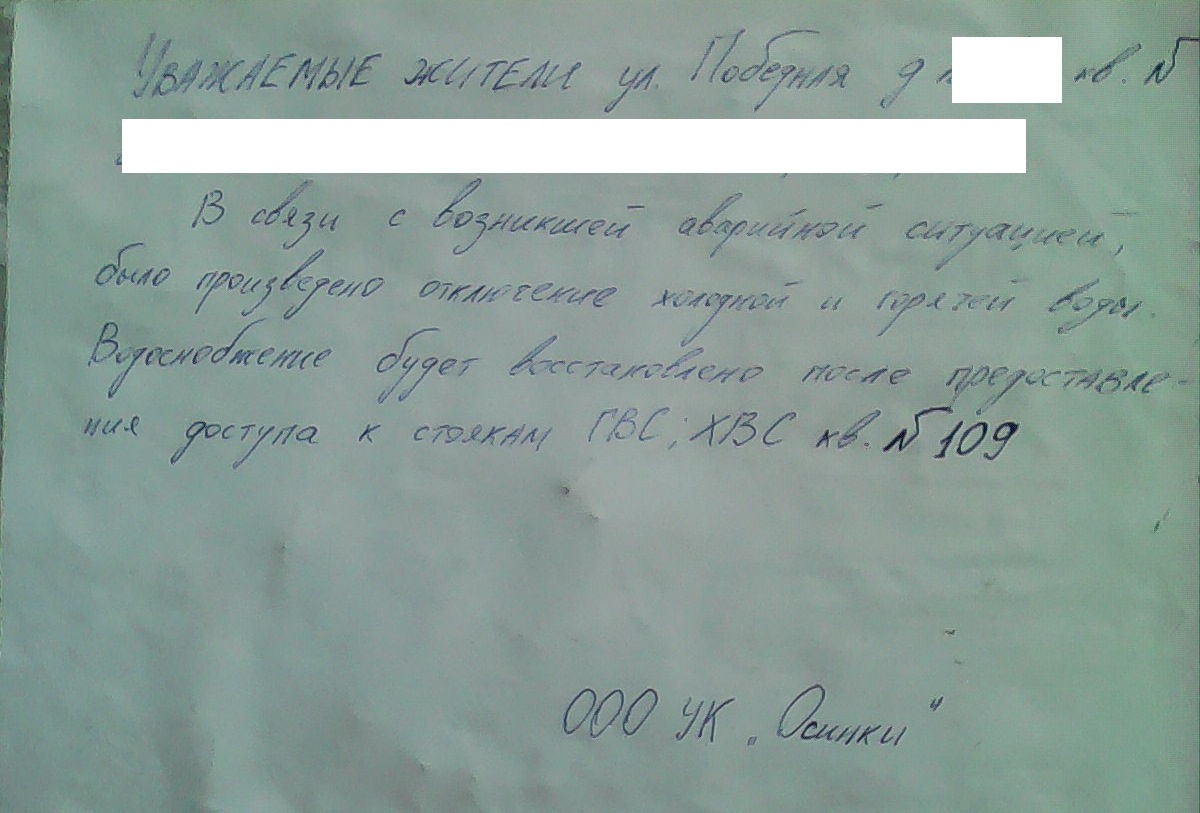 Уважаемые жители ул. Победная д кв. №
В связи с возникшей аварийной ситуацией,
было произведено отключение холодной и горячей воды.
Водоснабжение будет восстановлено после предоставле-
ния доступа к стоякам ГВС; ХВС кв. № 109
ООО УК „Осинки"